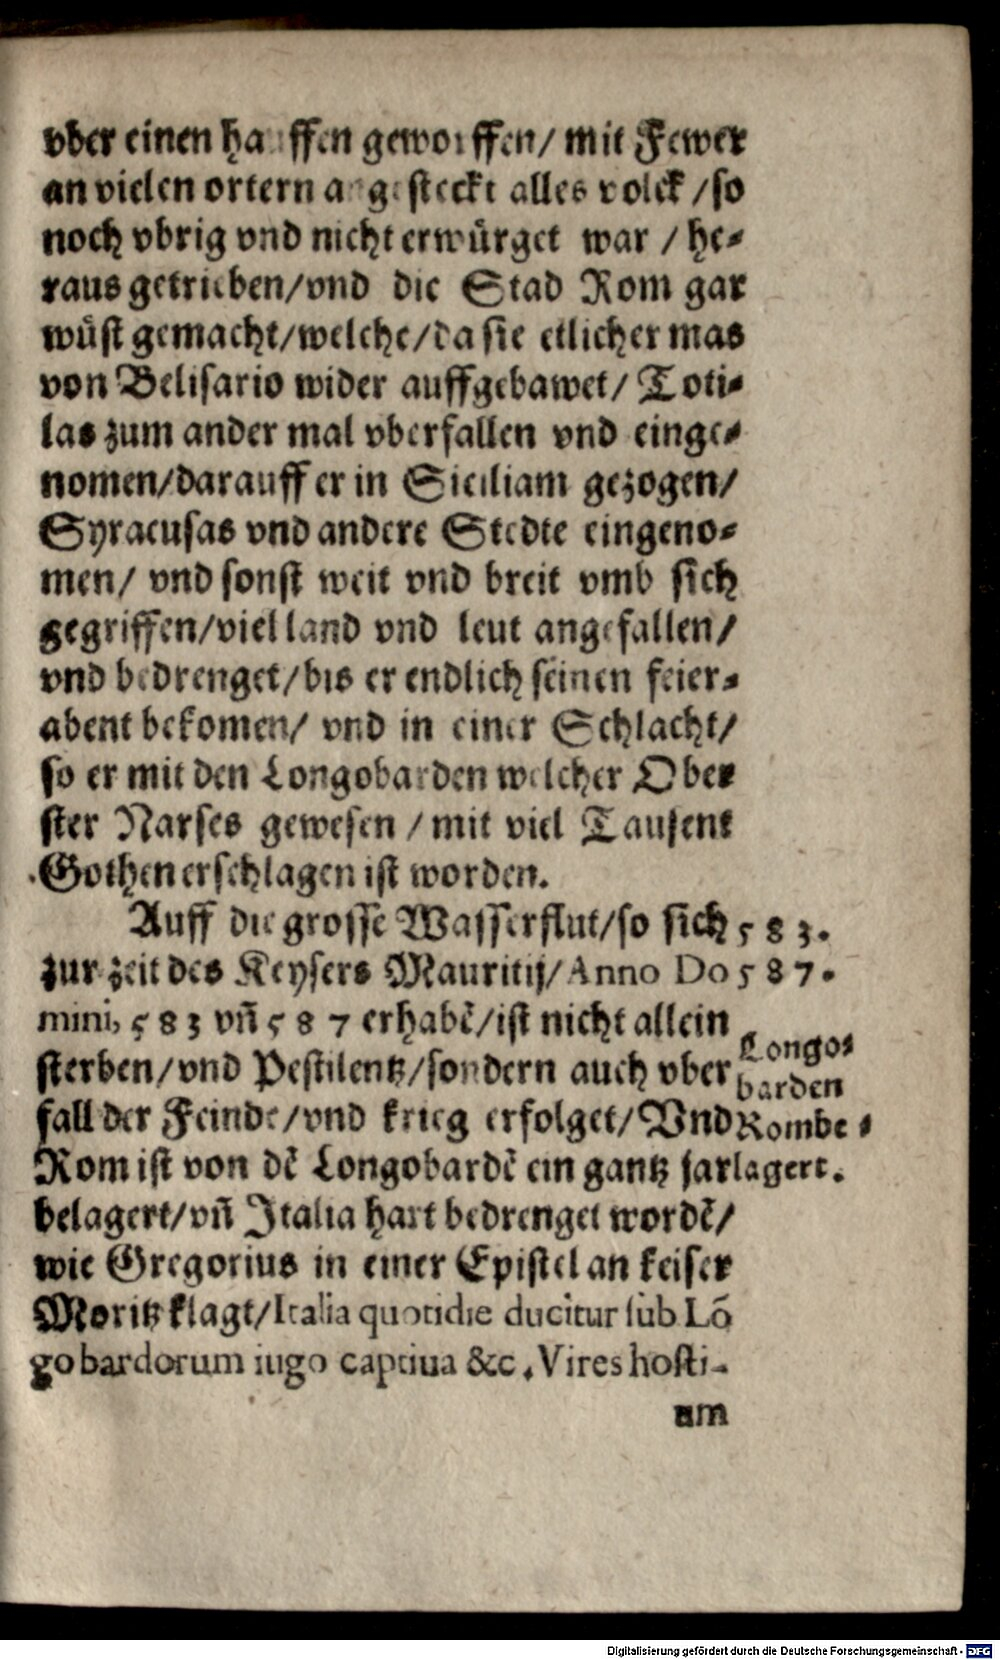 vber einen hauffen geworffen/ mit Fewer
an vielen ortern angesteckt alles volck /so
noch vbrig vnd nicht erwürget war / he-
raus getrieben/vnd die Stad Rom gar
wüst gemacht/welche/da sie etlicher mas
von Belisario wider auffgebawet/ Toti-
las zum ander mal vberfallen vnd einge-
nomen/darauff er in Siciliam gezogen/
Syracusas vnd andere Stedte eingeno-
men/ vnd sonst weit vnd breit vmb sich
gegriffen/viel land vnd leut angefallen/
vnd bedrenget/bis er endlich seinen feier-
abent bekomen/ vnd in einer Schlacht/
so er mit den Longobarden welcher Ober
ster Narses gewesen / mit viel Tausent
Gothen erschlagen ist worden.
Auff die grosse Wasserflut/so sich
zur zeit des Keysers Mauritij/Anno Do
mini, 583 vñ 587 erhabē/ist nicht allein
sterben/vnd Pestilentz/sondern auch vber
fall der Feinde/vnd krieg erfolget/Vnd
Rom ist von dē Longobardē ein gantz jar
belagert/vñ Italia hart bedrenget wordē/
wie Gregorius in einer Epistel an keiser
Moritz klagt/Italia quotidie ducitur sub Lō
gobardorum iugo captiua &c. Vires hosti-
um
583.
587.
Longo-
barden
Rom be-
lagert.
Digitalisierung gefördert durch die Deutsche Forschungsgemeinschaft - DFG